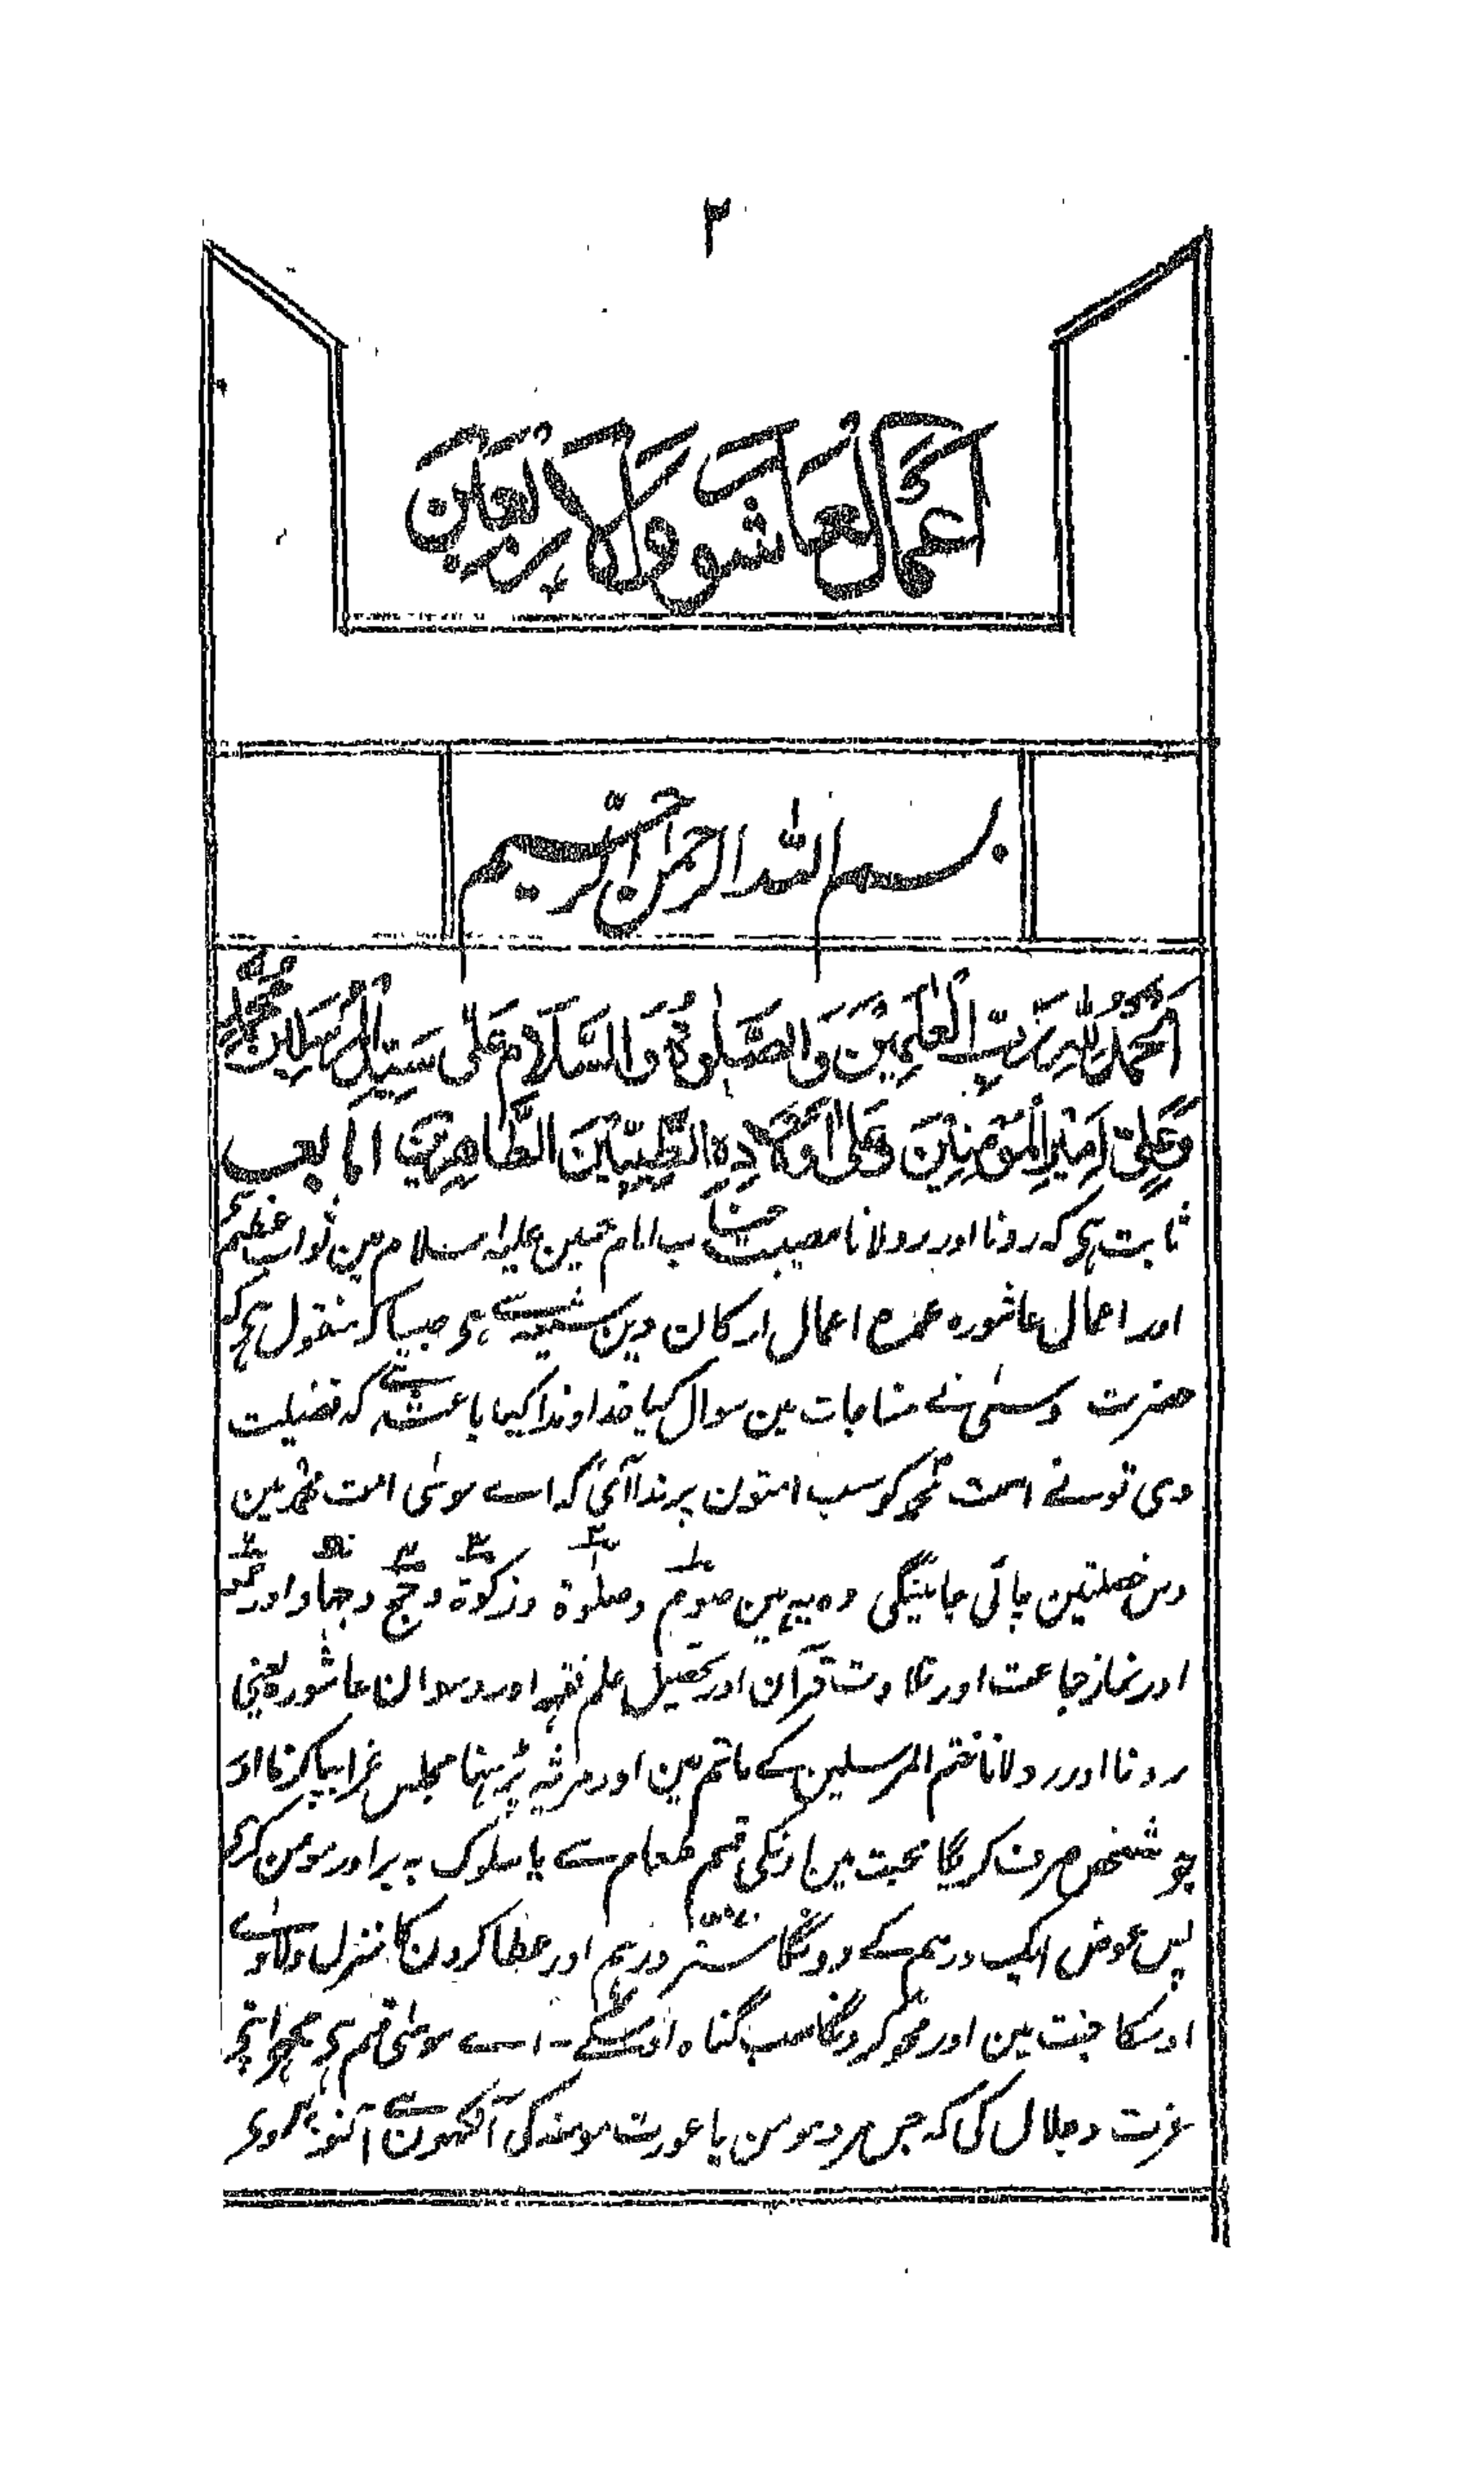 ۲
اعمال عاشور والاربعین
بسم اللہ الرحمن الرحیم
اَلْحَمْدُ لِلّٰہِ رَبِّ الْعٰلَمِیْنَ وَالصَّلٰوۃُ وَالسَّلَامُ عَلٰی سَیِّدِ الْمُرْسَلِیْنَ مُحَمَّدٍ
وَعَلِیٍّ اَمِیْرِ الْمُؤْمِنِیْنَ وَعَلٰی اَوْلَادِہِ الطَّیِّبِیْنَ الطَّاهِرِیْنَ اما بعد
ثابت ہی کہ رونا اور رولانا مصیبت جناب امام حسین علیہ السلام مین ثواب عظیم ہی
اور اعمال عاشورہ محرم اعمال ارکان دین شیعہ سے ہی جیسا کہ منقول ہی کہ
حضرت موسٰی نے مناجات مین سوال کیا خداوندا کیا باعث ہے کہ فضیلت
دی تونے امت محمد کو سب امتون پر ندا آئی کہ اے موسٰی امت محمد مین
دس خصلتین پائی جاینگی وہ یہ ہین صوم وصلوٰۃ وزکوٰۃ وحج وجہاد اور جمعہ
اور نماز جماعت اور تلاوت قرآن اور تحصیل علم فقہ اور دسوان عاشورہ یعنی
رونا اور رولانا ختم المرسلین کے ماتم مین اور مرثیہ پڑہنا مجلس عزا بپا کرنا اور
جو شخص صرف کریگا محبت مین اونکی قسم طعام سے یا سلوک بہ برادر مومن کری
پس عوض ایک درہم کے دونگا ستر درہم اور عطا کردن گا منزل
اوسکا جنت مین اور محو کردنگا سب گناہ اوسکے - اے موسٰی قسم ہی مجھ اپنے
عزت وجلال کی کہ جس مرد مومن یا عورت مومنہ کی آنکھون سے آنسو